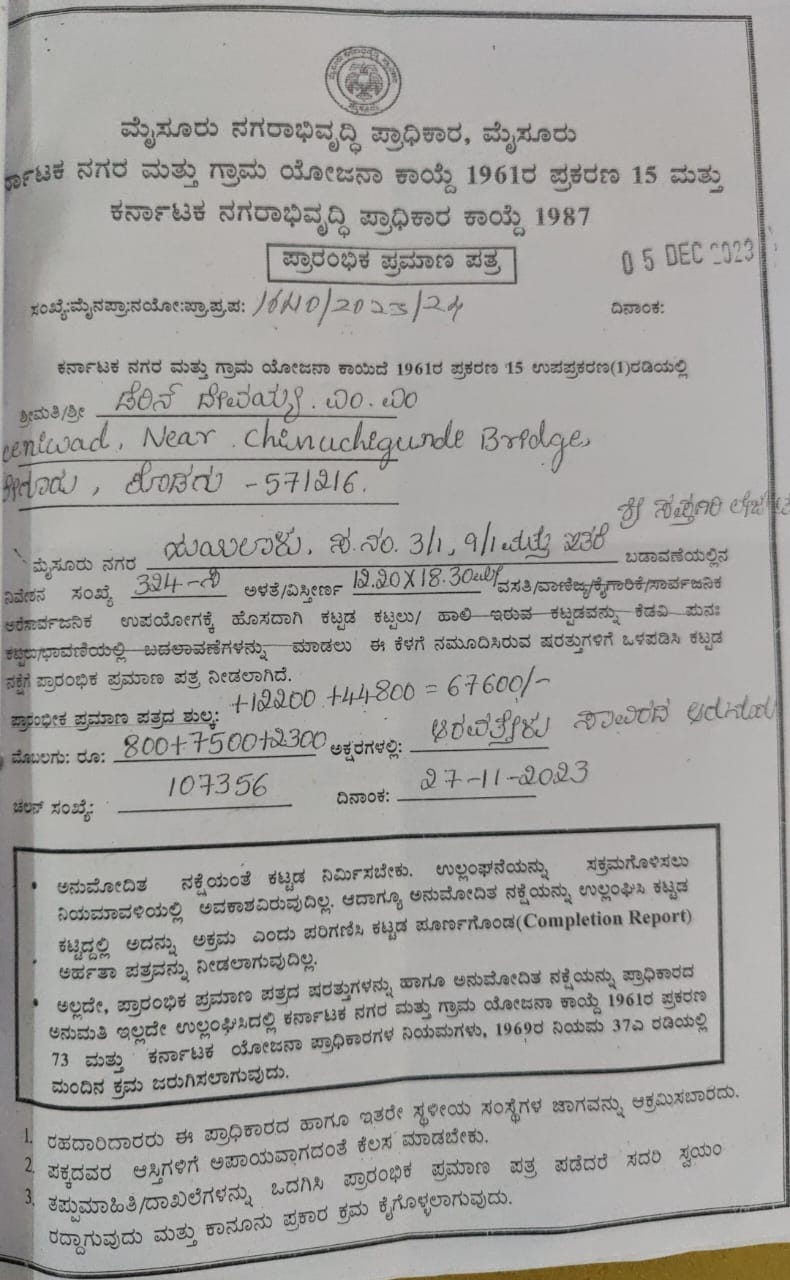 ಮೈಸೂರು ನಗರಾಭಿವೃದ್ಧಿ ಪ್ರಾಧಿಕಾರ, ಮೈಸೂರು
ರ್ನಾಟಕ ನಗರ ಮತ್ತು ಗ್ರಾಮ ಯೋಜನಾ ಕಾಯ್ದೆ 1961ರ ಪ್ರಕರಣ 15 ಮತ್ತು
ಕರ್ನಾಟಕ ನಗರಾಭಿವೃದ್ಧಿ ಪ್ರಾಧಿಕಾರ ಕಾಯ್ದೆ 1987
ಪ್ರಾರಂಭಿಕ ಪ್ರಮಾಣ ಪತ್ರ
05 DEC 2023
ಸಂಖ್ಯೆ:ಮೈನಪ್ರಾ:ನಯೋ:ಪ್ರಾ.ಪ್ರ.ಪ: /2023/24 ದಿನಾಂಕ:
ಕರ್ನಾಟಕ ನಗರ ಮತ್ತು ಗ್ರಾಮ ಯೋಜನಾ ಕಾಯಿದೆ 1961ರ ಪ್ರಕರಣ 15 ಉಪಪ್ರಕರಣ(1)ರಡಿಯಲ್ಲಿ
ಶ್ರೀಮತಿ/ಶ್ರೀ ಡೆರಿನ್ ದೇವಯ್ಯ. ಎಂ. ಎಂ
Near Chinuchigunde Bridge,
ಕೊಡಗು -571216.
ಶ್ರೀ ಸಪ್ತಗಿರಿ
ಮೈಸೂರು ನಗರ ಸ.ನಂ. 3/1, 9/1 ಮತ್ತು ಇತರೆ ಬಡಾವಣೆಯಲ್ಲಿನ
ನಿವೇಶನ ಸಂಖ್ಯೆ 324-ಸಿ ಅಳತೆ/ವಿಸ್ತೀರ್ಣ 12.20X18.30 ವಸತಿ/ವಾಣಿಜ್ಯ/ಕೈಗಾರಿಕೆ/ಸಾರ್ವಜನಿಕ
ಅರೆಸಾರ್ವಜನಿಕ ಉಪಯೋಗಕ್ಕೆ ಹೊಸದಾಗಿ ಕಟ್ಟಡ ಕಟ್ಟಲು/ ಹಾಲಿ ಇರುವ ಕಟ್ಟಡವನ್ನು ಕೆಡವಿ ಪುನಃ
ಕಟ್ಟಲು/ಭಾವಣಿಯಲ್ಲಿ ಬದಲಾವಣೆಗಳನ್ನು ಮಾಡಲು ಈ ಕೆಳಗೆ ನಮೂದಿಸಿರುವ ಷರತ್ತುಗಳಿಗೆ ಒಳಪಡಿಸಿ ಕಟ್ಟಡ
ನಕ್ಷೆಗೆ ಪ್ರಾರಂಭಿಕ ಪ್ರಮಾಣ ಪತ್ರ ನೀಡಲಾಗಿದೆ.
ಪ್ರಾರಂಭೀಕ ಪ್ರಮಾಣ ಪತ್ರದ ಶುಲ್ಕ: +12200 +44800 = 67600/-
ಮೊಬಲಗು: ರೂ: 800+7500+2300 ಅಕ್ಷರಗಳಲ್ಲಿ: ಅರವತ್ತೇಳು ಸಾವಿರದ ಆರುನೂರು
ಚಲನ್ ಸಂಖ್ಯೆ: 107356 ದಿನಾಂಕ: 27-11-2023
• ಅನುಮೋದಿತ ನಕ್ಷೆಯಂತೆ ಕಟ್ಟಡ ನಿರ್ಮಿಸಬೇಕು. ಉಲ್ಲಂಘನೆಯನ್ನು ಸಕ್ರಮಗೊಳಿಸಲು
ನಿಯಮಾವಳಿಯಲ್ಲಿ ಅವಕಾಶವಿರುವುದಿಲ್ಲ. ಆದಾಗ್ಯೂ ಅನುಮೋದಿತ ನಕ್ಷೆಯನ್ನು ಉಲ್ಲಂಘಿಸಿ ಕಟ್ಟಡ
ಕಟ್ಟಿದ್ದಲ್ಲಿ ಅದನ್ನು ಅಕ್ರಮ ಎಂದು ಪರಿಗಣಿಸಿ ಕಟ್ಟಡ ಪೂರ್ಣಗೊಂಡ(Completion Report)
ಅರ್ಹತಾ ಪತ್ರವನ್ನು ನೀಡಲಾಗುವುದಿಲ್ಲ.
• ಅಲ್ಲದೇ, ಪ್ರಾರಂಭಿಕ ಪ್ರಮಾಣ ಪತ್ರದ ಷರತ್ತುಗಳನ್ನು ಹಾಗೂ ಅನುಮೋದಿತ ನಕ್ಷೆಯನ್ನು ಪ್ರಾಧಿಕಾರದ
ಅನುಮತಿ ಇಲ್ಲದೇ ಉಲ್ಲಂಘಿಸಿದಲ್ಲಿ ಕರ್ನಾಟಕ ನಗರ ಮತ್ತು ಗ್ರಾಮ ಯೋಜನಾ ಕಾಯ್ದೆ 1961ರ ಪ್ರಕರಣ
73 ಮತ್ತು ಕರ್ನಾಟಕ ಯೋಜನಾ ಪ್ರಾಧಿಕಾರಗಳ ನಿಯಮಗಳು, 1969ರ ನಿಯಮ 37ಎ ರಡಿಯಲ್ಲಿ
ಮಂದಿನ ಕ್ರಮ ಜರುಗಿಸಲಾಗುವುದು.
1. ರಹದಾರಿದಾರರು ಈ ಪ್ರಾಧಿಕಾರದ ಹಾಗೂ ಇತರೇ ಸ್ಥಳೀಯ ಸಂಸ್ಥೆಗಳ ಜಾಗವನ್ನು ಆಕ್ರಮಿಸಬಾರದು.
2. ಪಕ್ಕದವರ ಆಸ್ತಿಗಳಿಗೆ ಅಪಾಯವಾಗದಂತೆ ಕೆಲಸ ಮಾಡಬೇಕು.
3. ತಪ್ಪುಮಾಹಿತಿ/ದಾಖಲೆಗಳನ್ನು ಒದಗಿಸಿ ಪ್ರಾರಂಭಿಕ ಪ್ರಮಾಣ ಪತ್ರ ಪಡೆದರೆ ಸದರಿ ಸ್ವಯಂ
ರದ್ದಾಗುವುದು ಮತ್ತು ಕಾನೂನು ಪ್ರಕಾರ ಕ್ರಮ ಕೈಗೊಳ್ಳಲಾಗುವುದು.